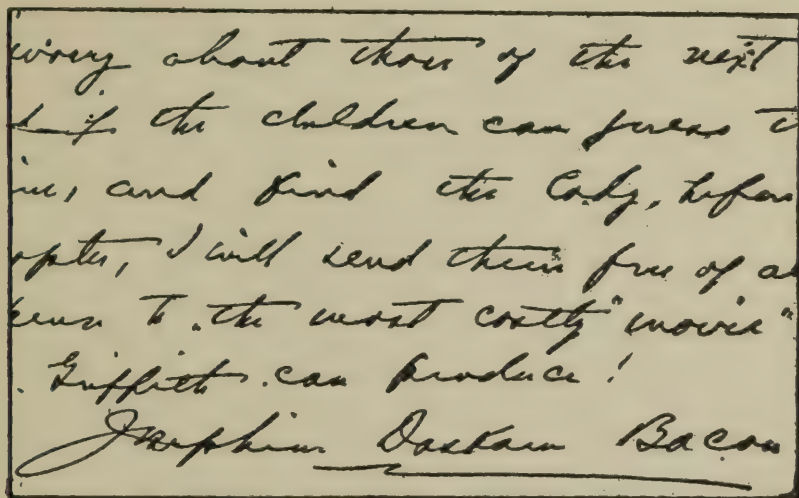 worry about those of the next
if the children can guess
and find the Lady, before
I will send them free of
to the most costly "movie"
Griffith can produce!
Josephine Daskam Bacon